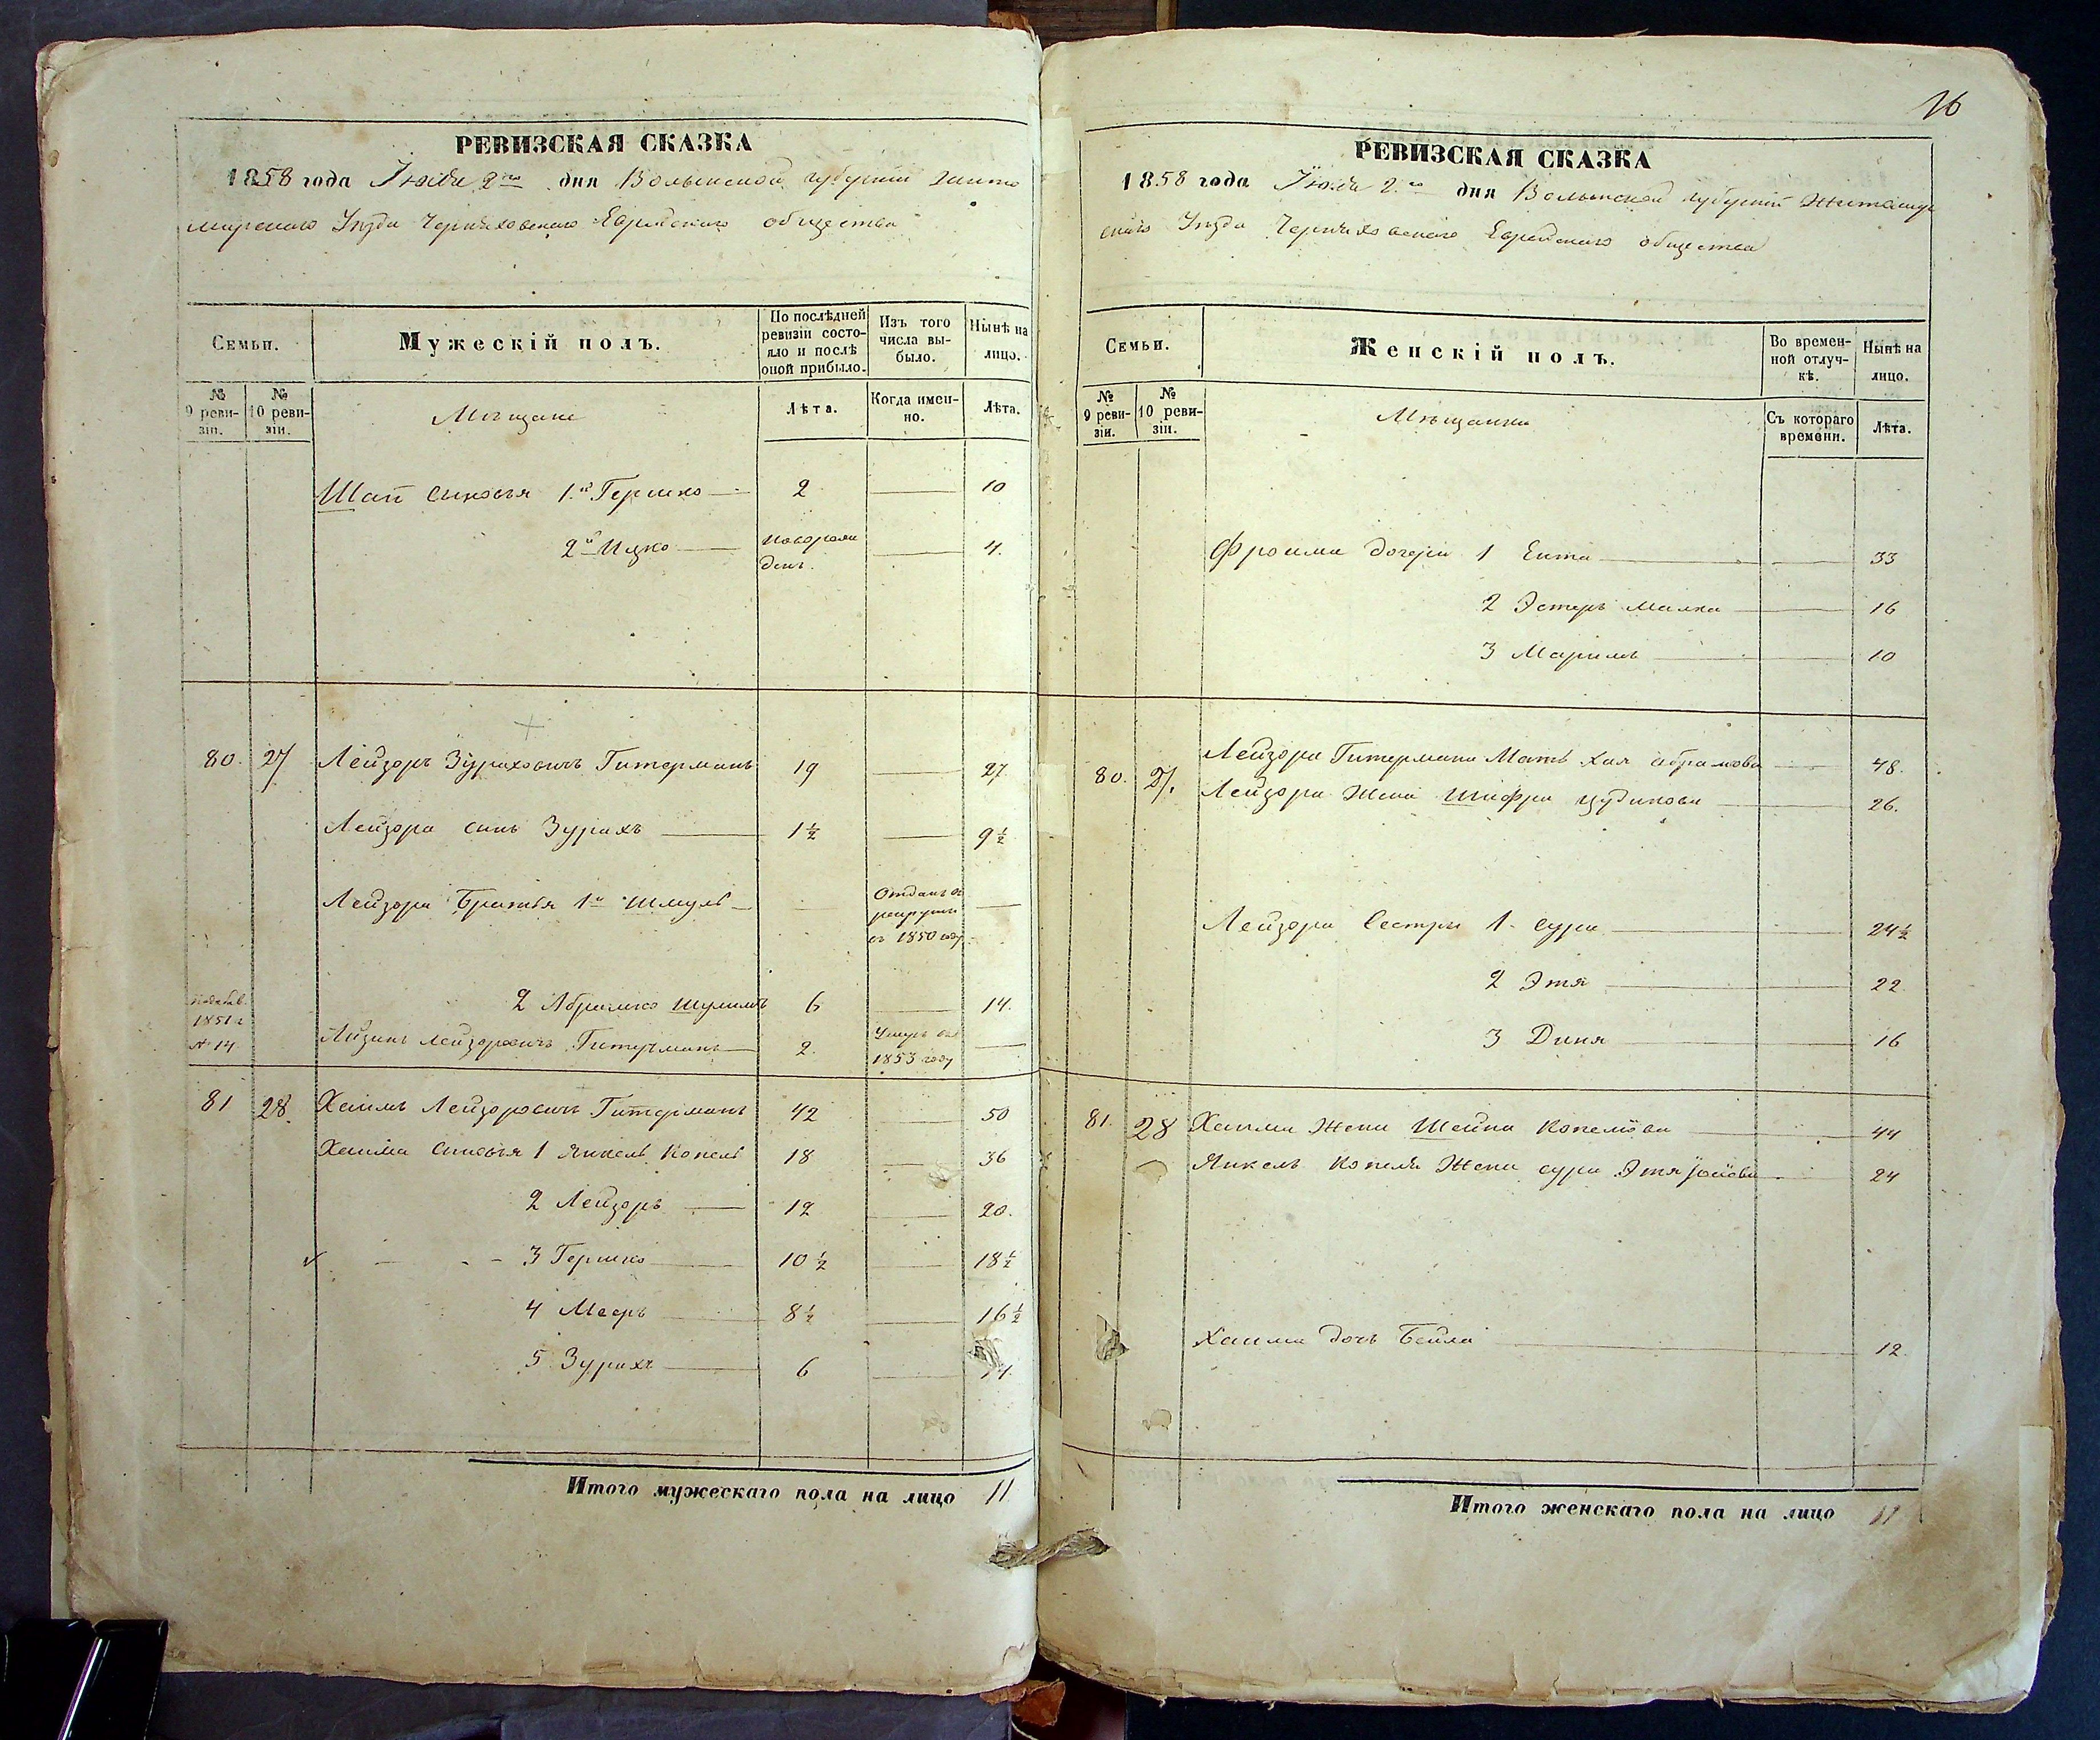 РЕВИЗСКАЯ СКАЗКА
1858 года Июня 2го дня Волынской губернии Жито
мирского Уезда Черняховского Еврейского общества
Семьи.
Мужескій полъ.
По послѣдней
ревизіи состо-
яло и послѣ
оной прибыло.
Изъ того
числа вы-
было.
Нынѣ на
лицо.
№
9 реви-
зіи.
№
10 реви-
зіи.
Мещане
Лѣта.
Когда имен-
но.
Лѣта.
сыновья 1й Гершко 2 10
2й Ицко новорож
ден. 4.
80. 27 Лейзоръ Зураховичъ Гитерманъ 19 27
Лейзора сынъ Зурахъ 1½ 9½
Лейзора Братья 1й Шмуль
Отданъ въ
рекруты
въ 1850 году
2 Абрамко Шулимъ 6 14.
1851 г
№ 14.
Айзикъ Лейзоровичъ Гитерманъ 2.
Умеръ въ
1853 году
81 28. Хаимъ Лейзоровичъ Гитерманъ 42 50
Хаима сыновья 1 Янкель Копель 18 36
2 Лейзоръ 12 20.
3 Гершко 10½ 18½
4 Мееръ 8½ 16½
5 Зурахъ 6
Итого мужескаго пола на лицо 11
16
РЕВИЗСКАЯ СКАЗКА
1858 года Июня 2го дня Волынской губернии Житомир
ского Уезда Черняховского Еврейского общества
Семьи.
Женскій полъ.
Во времен-
ной отлуч-
кѣ.
Нынѣ на
лицо.
№
9 реви-
зіи.
№
10 реви-
зіи.
Мещанки
Съ котораго
времени.
Лѣта.
Фроима дочери 1 Ента 33
2 Эстеръ Малка 16
3 Маримъ 10
80. 27. Лейзора Гитермана Мать Хая Абрамова 48.
Лейзора Жена Шифра 26.
Лейзора Сестры 1. Сура 24½
2 Этя 22
3 Диня 16
81. 28 Хаима Жена Шейна Копелiова 44
Янкель Копеля Жена Сура Этя 24
Хаима дочь Бейла 12.
Итого женскаго пола на лицо 11